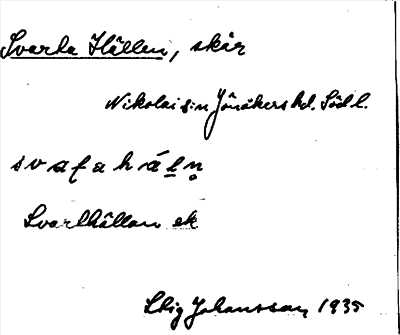 Svarta Hällen, skär
Nikolai sn Jönåkers hd. Södl.
svaṯahälṇ
Svarthällan ek
Stig Johansson 1935